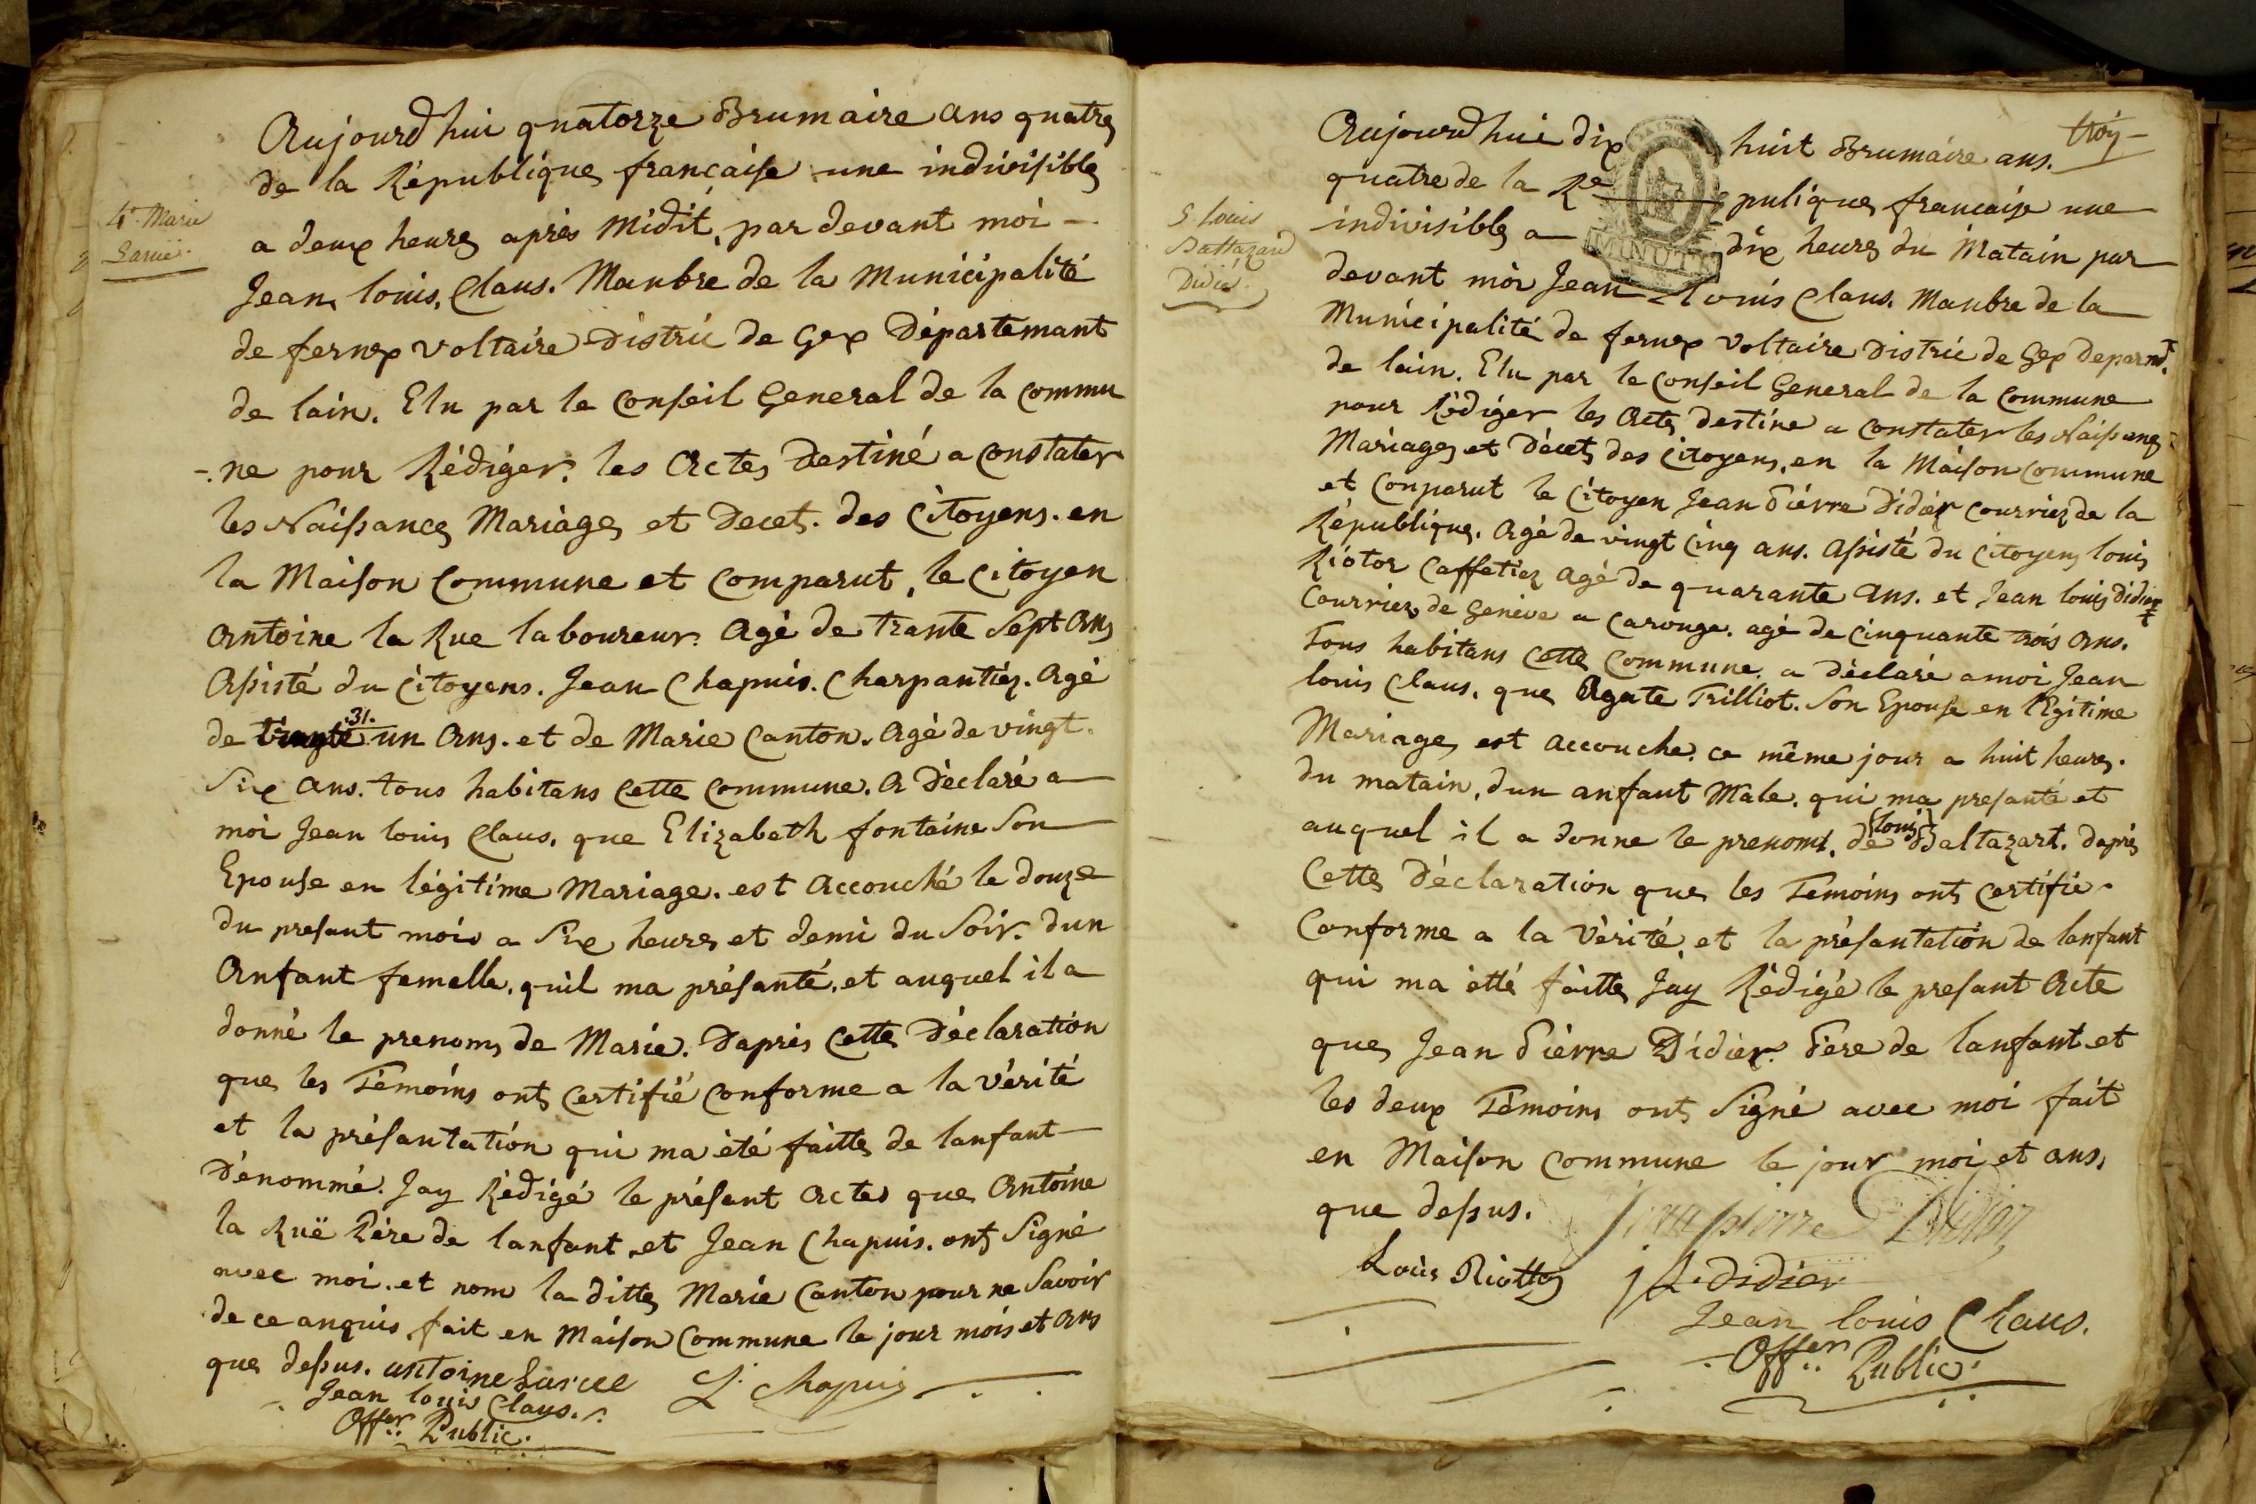 4e. Marie
Larüe.
Aujourdhui quatorze Brumaire ans quatre
de la République française une indivisible
a deux heures après Midit, par devant moi
Jean, louis, Claus. Manbre de la Municipalité
de fernex voltaire Distric de Gex Département
de lain. Elu par le Conseil General de la Commu
-ne pour Rédiger. les Actes Destiné a Constater
les Naissances Mariages et Decet. des Citoyens. en
la Maison Commune et Comparut, le Citoyen
Antoine la Rue laboureur. Agé de trante Sept Ans
Assisté du Citoyens. Jean Chapuis. Charpantiér. Agé
de 31. un Ans. et de Marie Canton. Agé de vingt.
Six Ans. tous habitans Cette Commune. A Déclaré a
moi Jean louis Claus. que Elizabeth fontaine Son
Epouse en légitime Mariage. est Accouché le douze
du presant mois a Six heures et demi du Soir. dun
Anfant femelle. quil ma présanté. et auquel il a
donné le prenoms de Marie. Daprès Cette Déclaration
que les Témoins onts Certifié Conforme a la vérité
et la présantation qui ma été faitte de lanfant
Dénommé. Jay Rédigé le présent Actes que Antoine
la Ruë Père de lanfant. et Jean Chapuis. onts Signé
avec moi. et nom la ditte Marie Canton pour ne Savoir
de ce anquis. fait en Maison Commune le jour mois et Ans
que dessus. antoine Larue
Chapuis
Jean louis Claus.
Offer. Public.
troi
5 Louis
Baltazard
Didié.
MINUTE
Aujourdhui dix huit Brumaire ans.
quatre de la Re pulique francaise une
indivisible a dix heures du Matain par
devant moi Jean Louis Claus. Manbre de la
Municipalité de fernex Voltaire Distric de Gex Deparmt.
de lain. Elu par le Conseil General de la Commune
pour Rédiger les Actes destine a Constater les Naissances
Mariages et Décets des Citoyens, en la Maison Commune
et Conparut le Citoyen Jean Piérre Didiér Courriér de la
République. Agé de vingt Cinq ans. Assisté du Citoyens louis
Riotor Caffetier agé de quarante Ans. et Jean louis Didier
Courrier de Genève a Carouge. agé de Cinquante trois Ans.
tous habitans Cette Commune. a Déclaré a moi Jean
louis Claus. que Agate Trilliot. Son Epouse en légitime
Mariage est Accouche. ce même jour a huit heures.
du matain, dun anfant Male. qui ma presanté et
auquel il a donne le prenoms. de louis Baltazart. daprès
Cette Déclaration que les Temoins onts Certifie.
Conforme a la Vérité, et la présantation de lanfant
qui ma étté faitte Jay Rédigé le presant Acte
que Jean Piérre Didier. Père de lanfant et
les deux Témoins onts Signé avec moi fait
en Maison Commune le jour moi et ans,
que dessus.
jean pierre Didier
Louis Riotto
j L. Didier
Jean louis Claus.
Offer. Public.